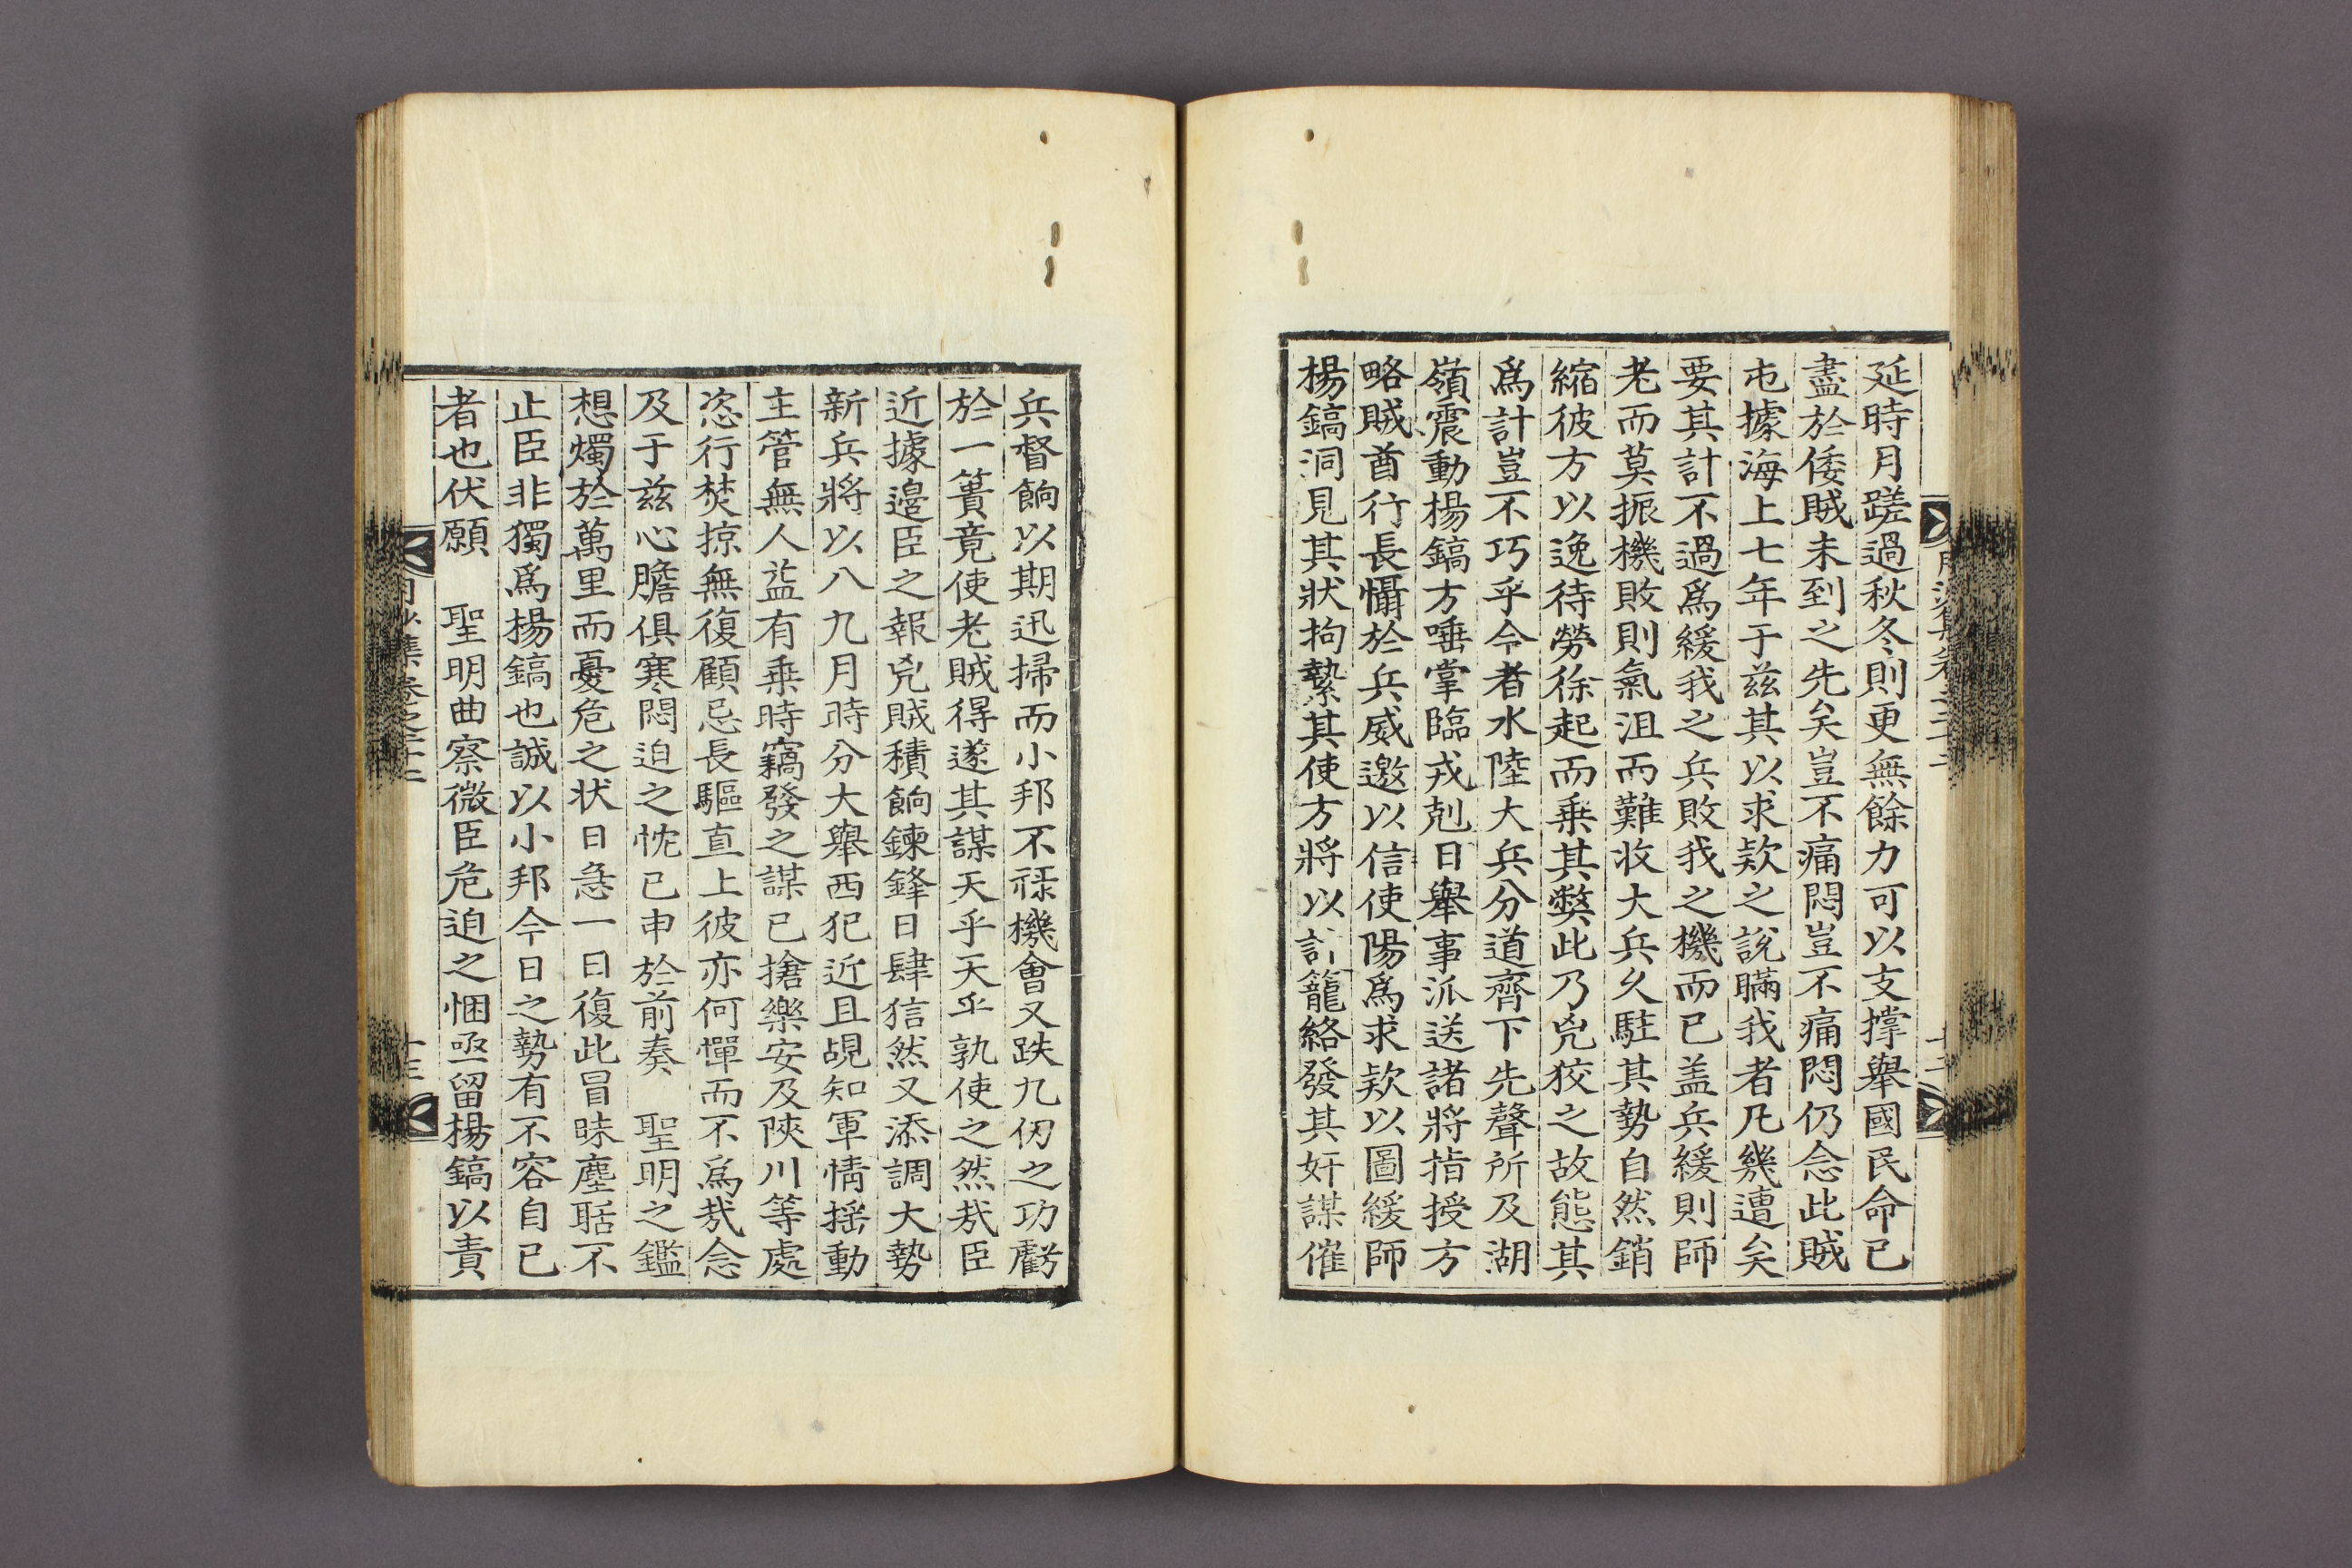 延時月蹉過秋冬則更無餘力可以支撑舉國民命已
盡於倭賊未到之先矣豈不痛悶豈不痛悶仍念此賊
屯據海上七年于兹其以求欵之說瞞我者凡幾遭矣
要其計不過爲緩我之兵敗我之機而已盖兵緩則師
老而莫振機敗則氣沮而難收大兵久駐其勢自然銷
縮彼方以逸待勞徐起而乗其弊此乃兇狡之故態其
爲計豈不巧乎今者水陸大兵分道齊下先聲所及湖
嶺震動楊鎬方唾掌臨戎剋日舉事派送諸將指授方
略賊酋行長懾於兵威邀以信使陽爲求欵以圖緩師
楊鎬洞見其狀拘縶其使方將以計籠絡發其奸謀催
兵督餉以期迅掃而小邦不祿機會又跌九仞之功虧
於一簣竟使老賊得遂其謀天乎天乎孰使之然㢤臣
近據邊臣之報兇賊積餉鍊鋒日肆猖然又添調大勢
新兵將以八九月時分大舉西犯近且覘知軍情搖動
主管無人益有乗時竊發之謀已搶樂安及陜川等處
恣行焚掠無復顧忌長驅直上彼亦何憚而不爲㢤念
及于兹心膽俱寒悶迫之忱已申於前奏　聖明之鑑
想燭於萬里而憂危之状日急一日復此冒昧塵聒不
止臣非獨爲楊鎬也誠以小邦今日之勢有不容自已
者也伏願　聖明曲察微臣危迫之悃亟留楊鎬以責